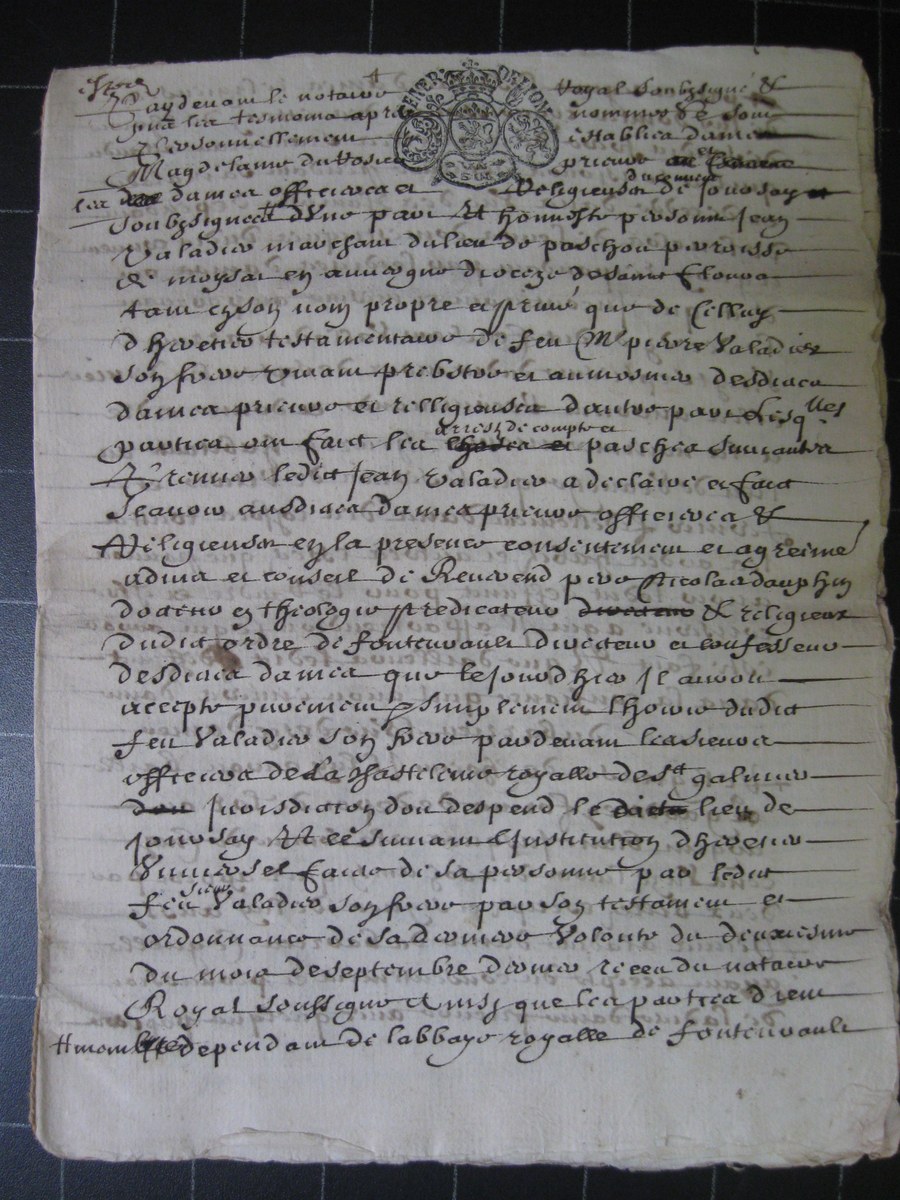 Pardevant le notaire Royal soubzsigné &
GENER DE LYON
SIX D
personnellement establies dame
Magdelaine du Rosier prieure et
les dames officieres et Religieuses du couvent de Jourssay
soubzsignees # d'une part Et honneste personne Jean
Valadier marchant du lieu de paschou parroisse
de moyssat en auvergne dioceze de sainct Flour
tant en son nom propre et privé que de Celluy
d'heretier testamentaire de feu Mre pierre Valadier
son frere vivant prebstre et aumosnier desdictes
dames prieure et relligieuses d'autre part Lesqlles
arrest de compte et
parties ont faict les pasches suivantes
Premier ledict Jean Valadier a declairé et faict
sçavoir ausdictes dames prieure officieres &
Religieuses en la presence consentement et agreemt
advis et conseil de Reverend pere Nicolas dauphin
docteur en theologie predicateur directeur & religieux
dudict ordre de fontevrault directeur et confesseur
desdictes dames que le jourd'hier Il auroit
accepté purement & simplement l'hoirie dudict
feu Valadier son frere pardevant les sieurs
officiers de la Chastelenie royalle de St galmier
jurisdiction dou despend le lieu de
Joursay Et ce suivant l'Institution d'heretier
Universel faicte de sa personne par ledict
sieur
feu Valadier son frere par son testament et
ordonnance de sa derniere Volonté du deuxiesme
du mois de septembre dernier receu du notaire
Royal soussigné Ainsy que les parties dient
# membre dependant de l'abbaye royalle de fontevrault